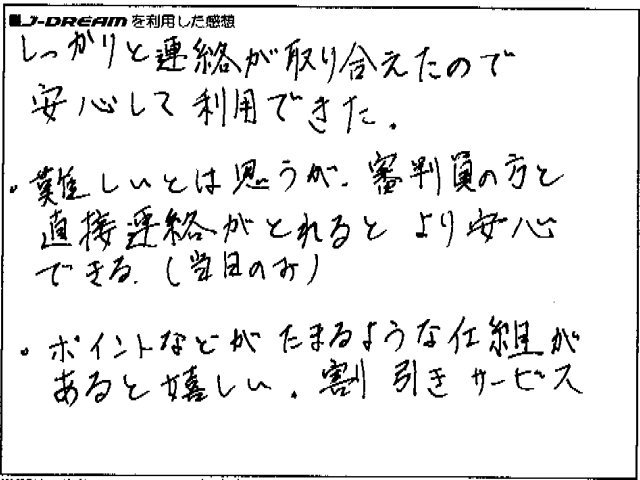 ■J-DREAMを利用した感想
しっかりと連絡が取り合えたので
安心して利用できた.
・難しいとは思うが、審判員の方と
直接連絡がとれるとより安心
できる.(当日のみ)
・ポイントなどがたまるような仕組が
あると嬉しい.割引きサービス